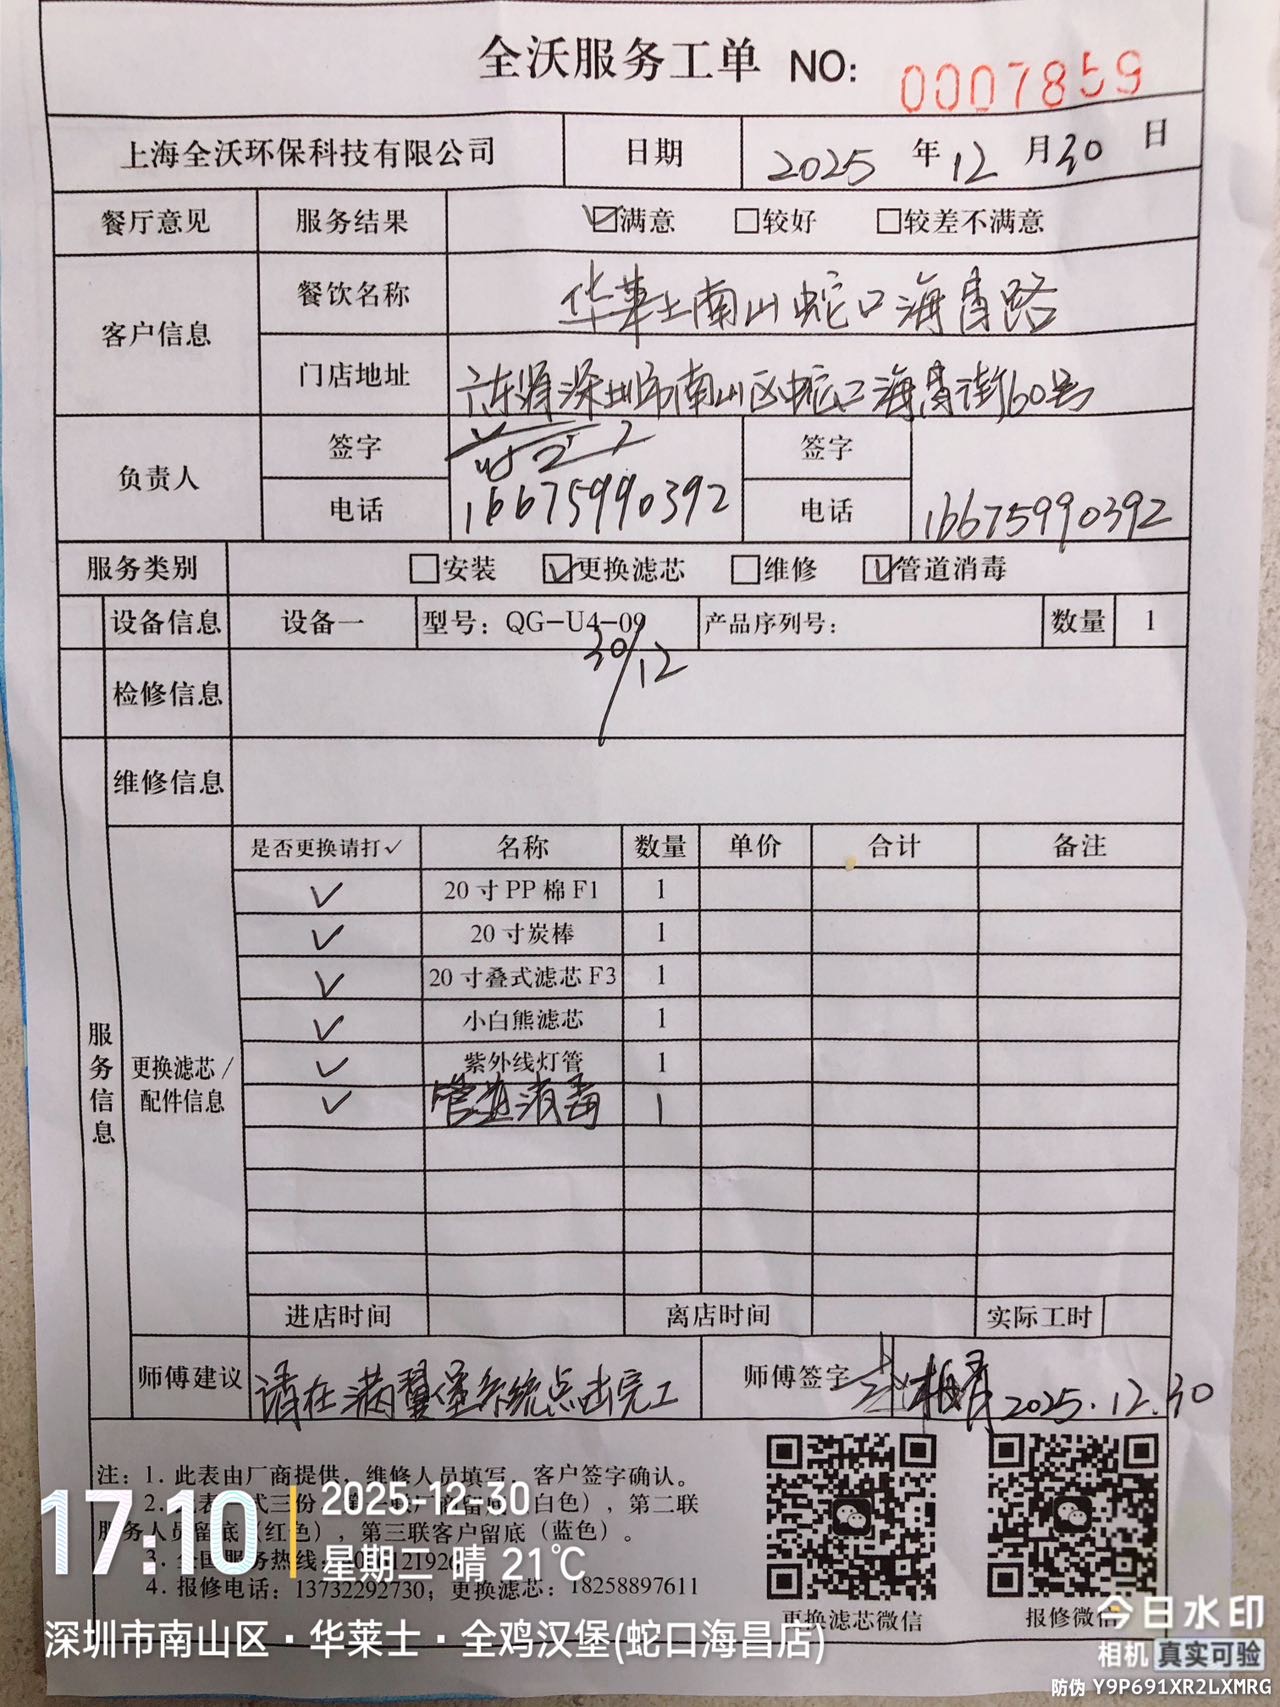 全沃服务工单 NO: 0007859
上海全沃环保科技有限公司 日期 2025 年 12 月 30 日
餐厅意见 服务结果 ☑满意 □较好 □较差不满意
客户信息 餐饮名称 华莱士南山蛇口海昌路
门店地址 广东省深圳市南山区蛇口海昌街60号
负责人 签字 签字
电话 16675990392 电话 16675990392
服务类别 □安装 ☑更换滤芯 □维修 ☑管道消毒
设备信息 设备一 型号：QG-U4-09 产品序列号： 数量 1
30/12
检修信息
维修信息
服务信息
更换滤芯/配件信息
是否更换请打✓ 名称 数量 单价 合计 备注
✓ 20寸PP棉F1 1
✓ 20寸炭棒 1
✓ 20寸叠式滤芯F3 1
✓ 小白熊滤芯 1
✓ 紫外线灯管 1
✓ 管道消毒 1
进店时间 离店时间 实际工时
师傅建议 请在满翼堡系统点击完工 师傅签字 2025.12.30
注：1．此表由厂商提供，维修人员填写，客户签字确认。
2． 表 式三份 白色），第二联
服务人员留底（红色），第三联客户留底（蓝色）。
3．全国服务热线：
4．报修电话：13732292730；更换滤芯：18258897611
更换滤芯微信 报修微信
17:10 2025-12-30
星期二 晴 21℃
深圳市南山区·华莱士·全鸡汉堡(蛇口海昌店)
今日水印
相机 真实可验
防伪 Y9P691XR2LXMRG